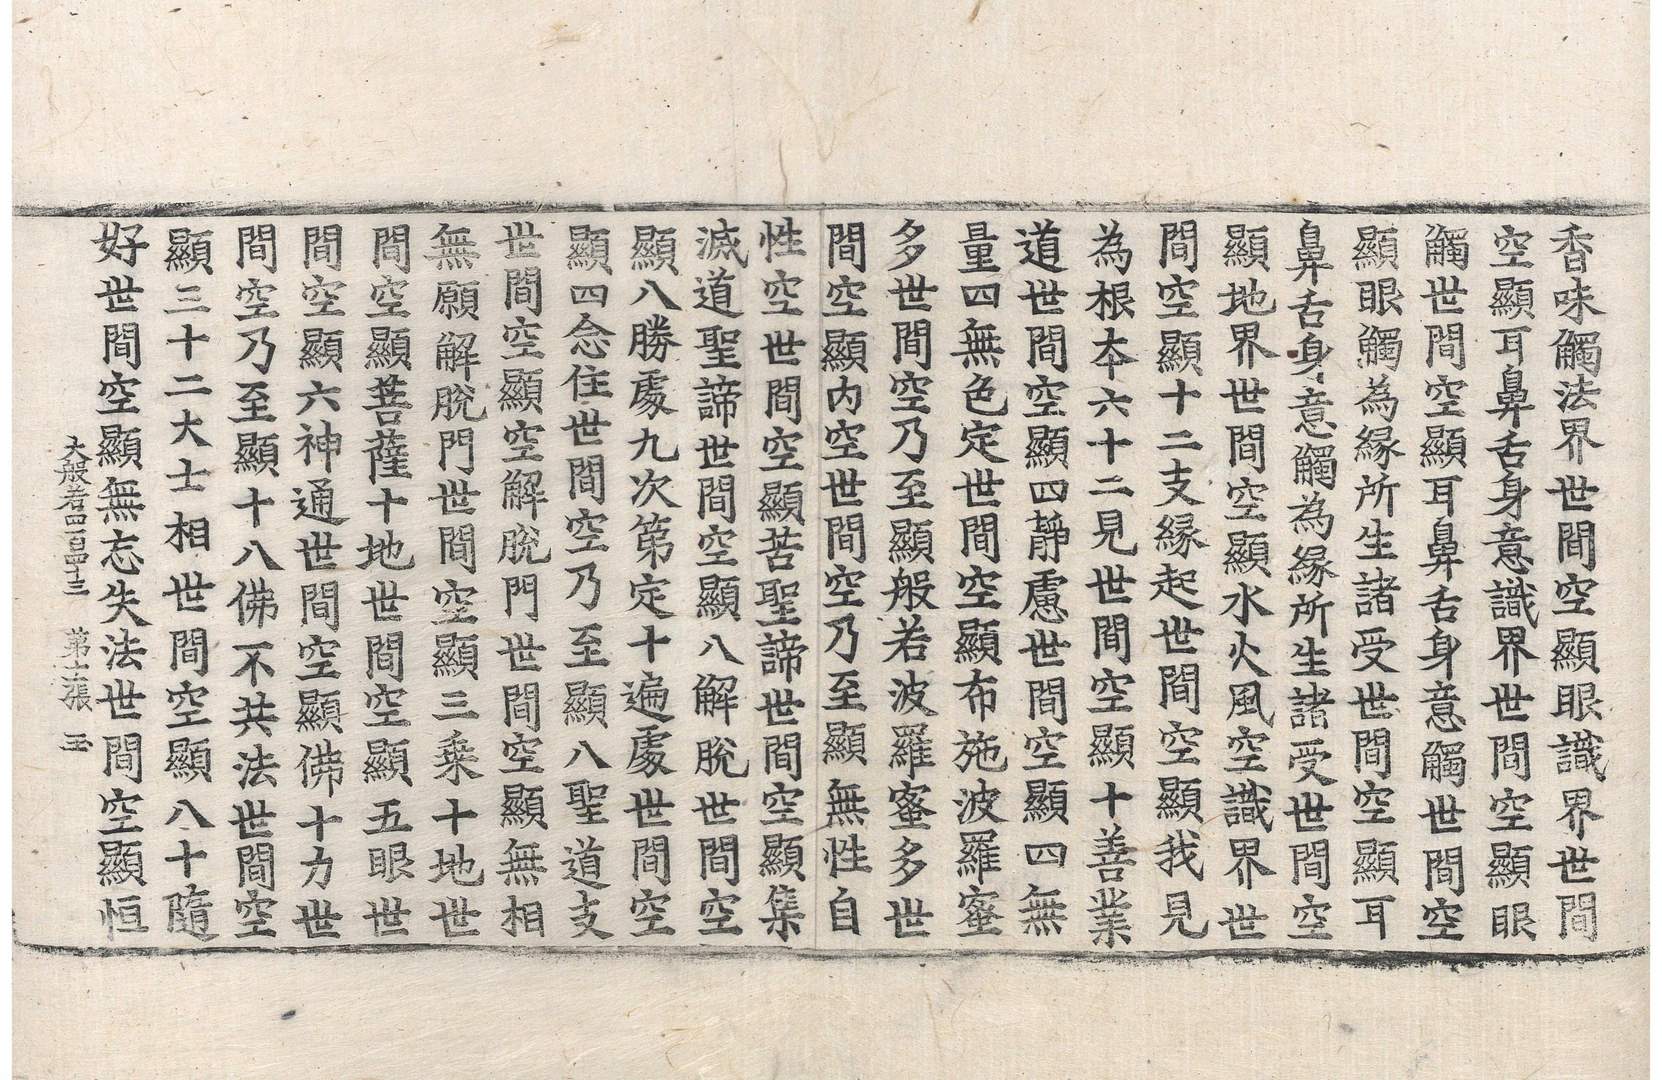 香味觸法界世間空顯眼識界世間
空顯耳鼻舌身意識界世間空顯眼
觸世間空顯耳鼻舌身意觸世間空
顯眼觸為緣所生諸受世間空顯耳
鼻舌身意觸為緣所生諸受世間空
顯地界世間空顯水火風空識界世
間空顯十二支緣起世間空顯我見
為根本六十二見世間空顯十善業
道世間空顯四靜慮世間空顯四無
量四無色定世間空顯布施波羅蜜
多世間空乃至顯般若波羅蜜多世
間空顯內空世間空乃至顯無性自
性空世間空顯苦聖諦世間空顯集
滅道聖諦世間空顯八解脫世間空
顯八勝處九次第定十遍處世間空
顯四念住世間空乃至顯八聖道支
世間空顯空解脫門世間空顯無相
無願解脫門世間空顯三乘十地世
間空顯菩薩十地世間空顯五眼世
間空顯六神通世間空顯佛十力世
間空乃至顯十八佛不共法世間空
顯三十二大士相世間空顯八十隨
好世間空顯無忘失法世間空顯恒
大般若四百四十三 第張